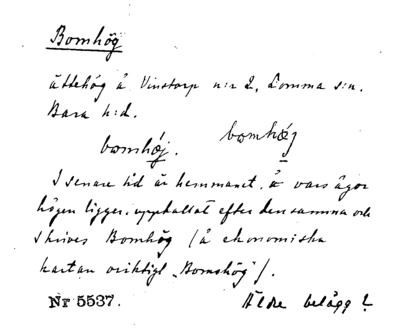 Bomhög
ättehög å Vinstorp n:r 2, Lomma s:n.
Bara h:d.
bomhøj. bomhøj
I senare tid är hemmanet, å vars ägor
högen ligger, uppkallat efter densamma och
skrives Bomhög (å ekonomiska
kartan oriktigt „Bomshög").
Nr 5537. Äldre belägg?